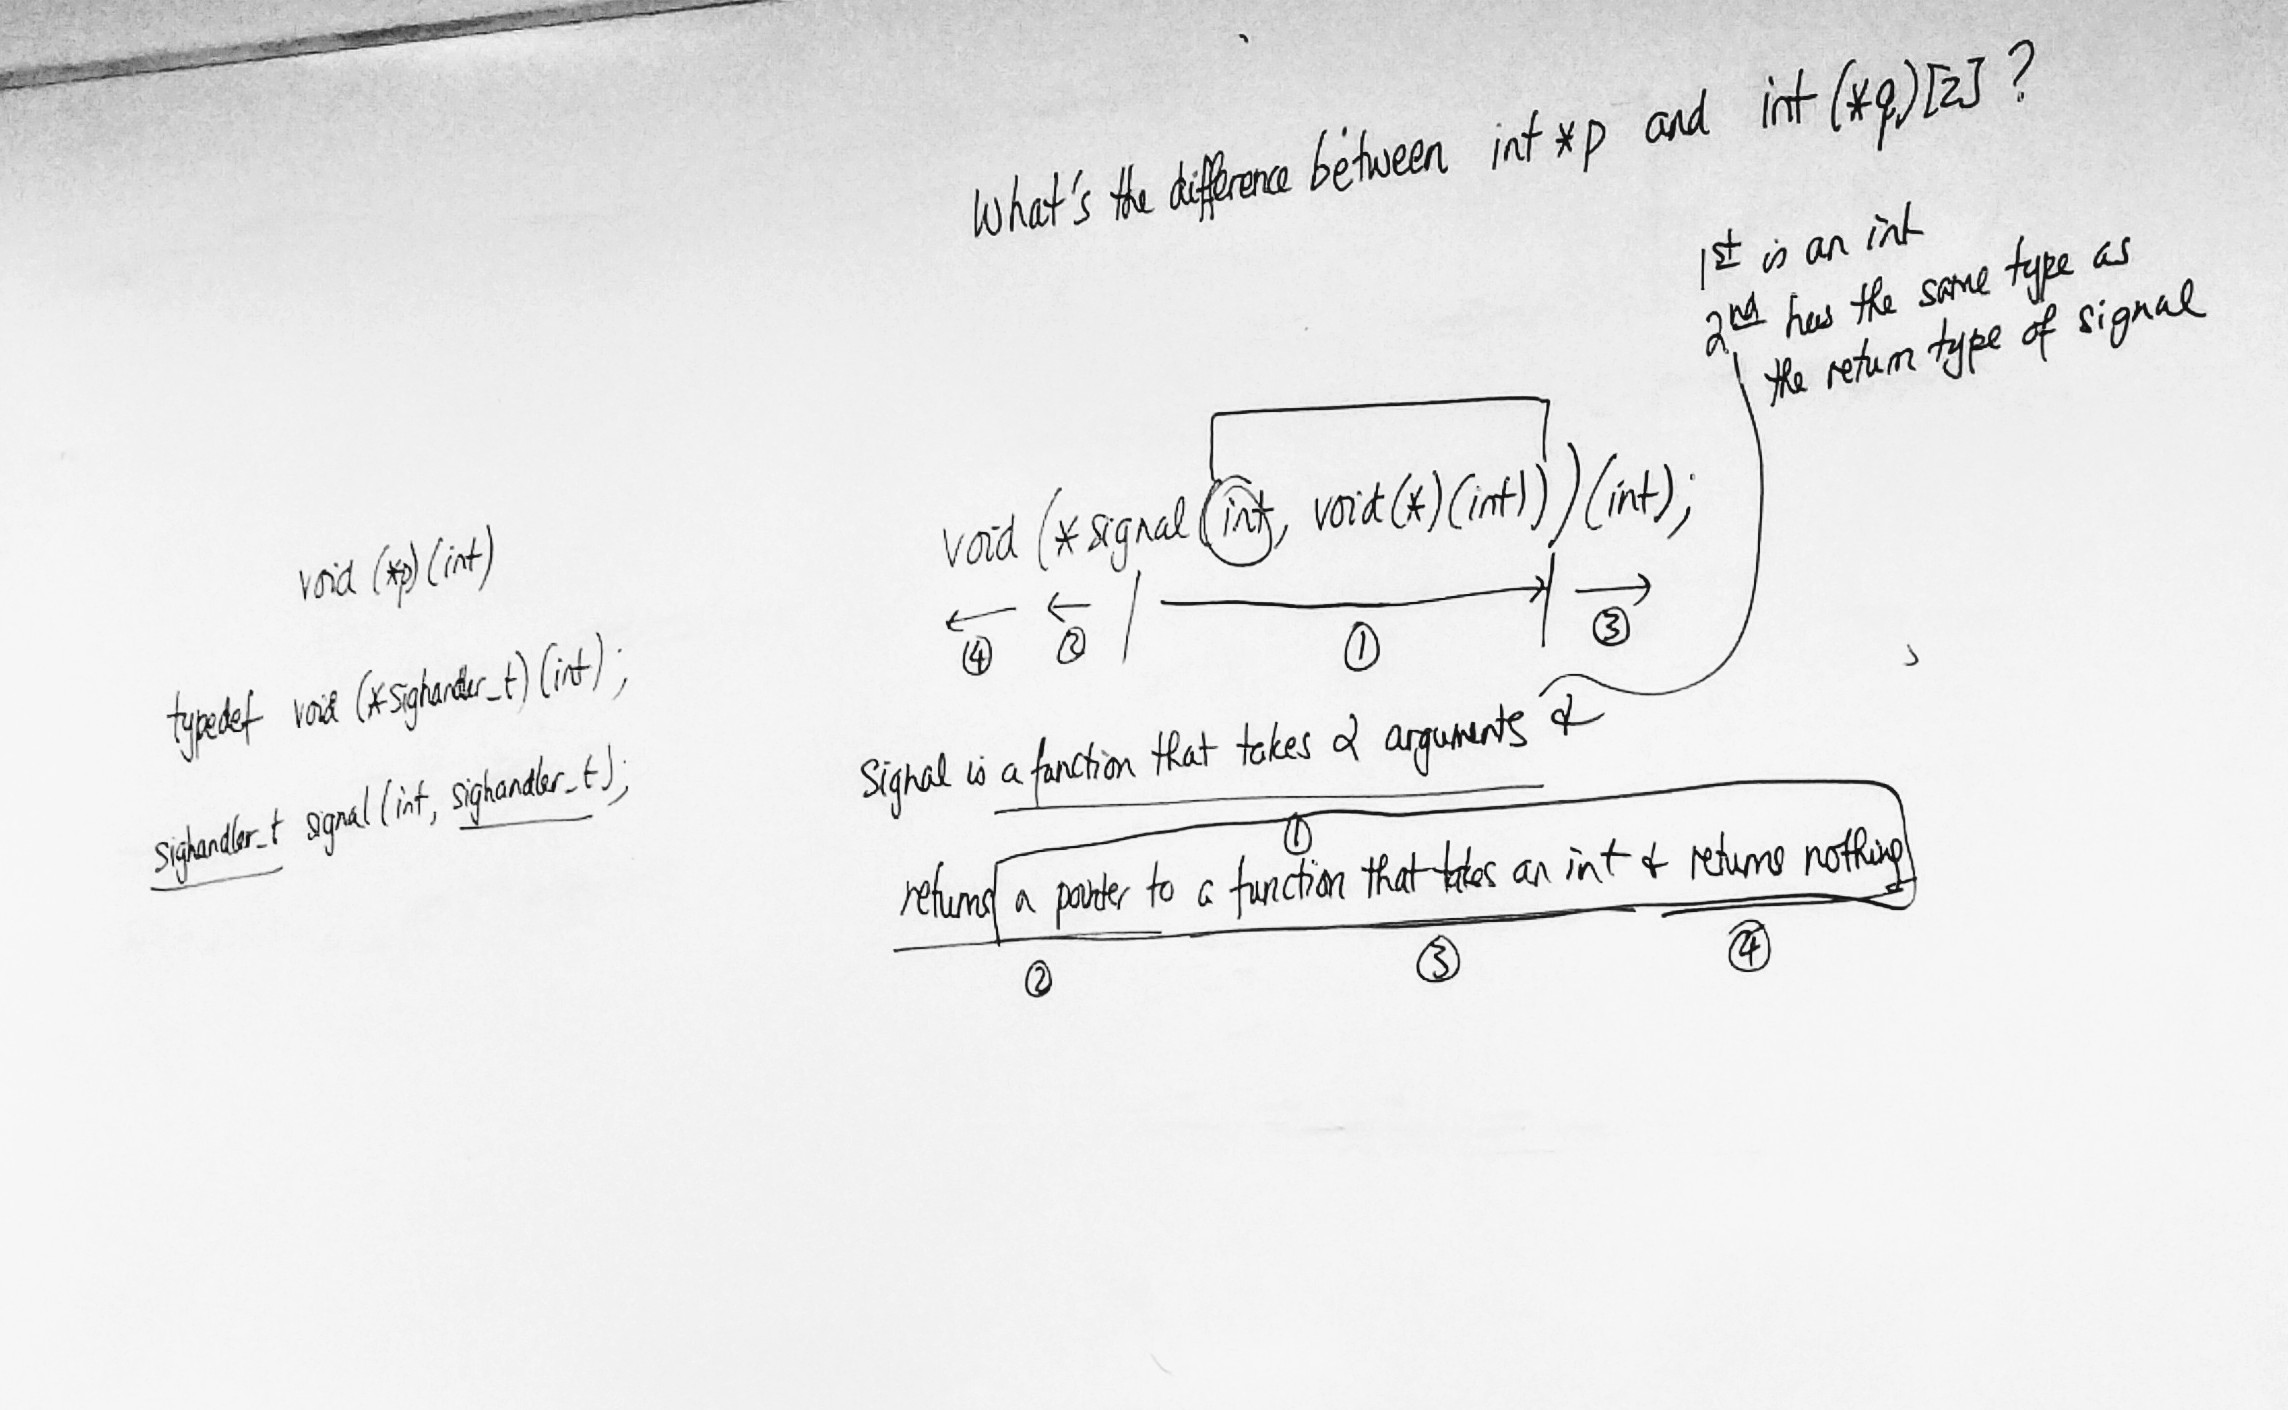 What's the difference between int *p and int (*q)[2]?
1st is an int
2nd has the same type as
the return type of signal
void (*signal(int, void(*)(int)))(int);
④ ② ① ③
Signal is a function that takes 2 arguments &
①
returns a pointer to a function that takes an int & returns nothing
② ③ ④
void (*p)(int)
typedef void (*sighandler_t)(int);
sighandler_t signal(int, sighandler_t);